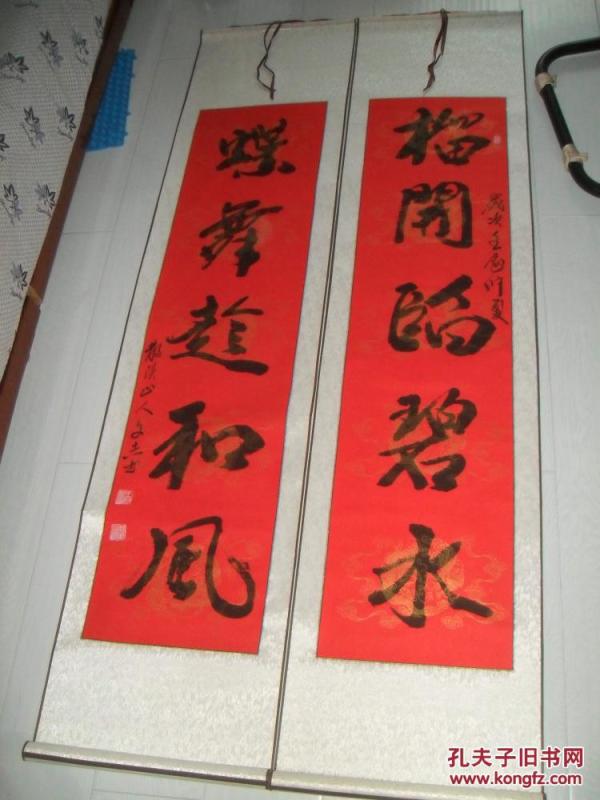 榴開臨碧水
歲次壬辰仲夏
蝶舞趁和風
山人文杰书
孔夫子旧书网
www.kongfz.com